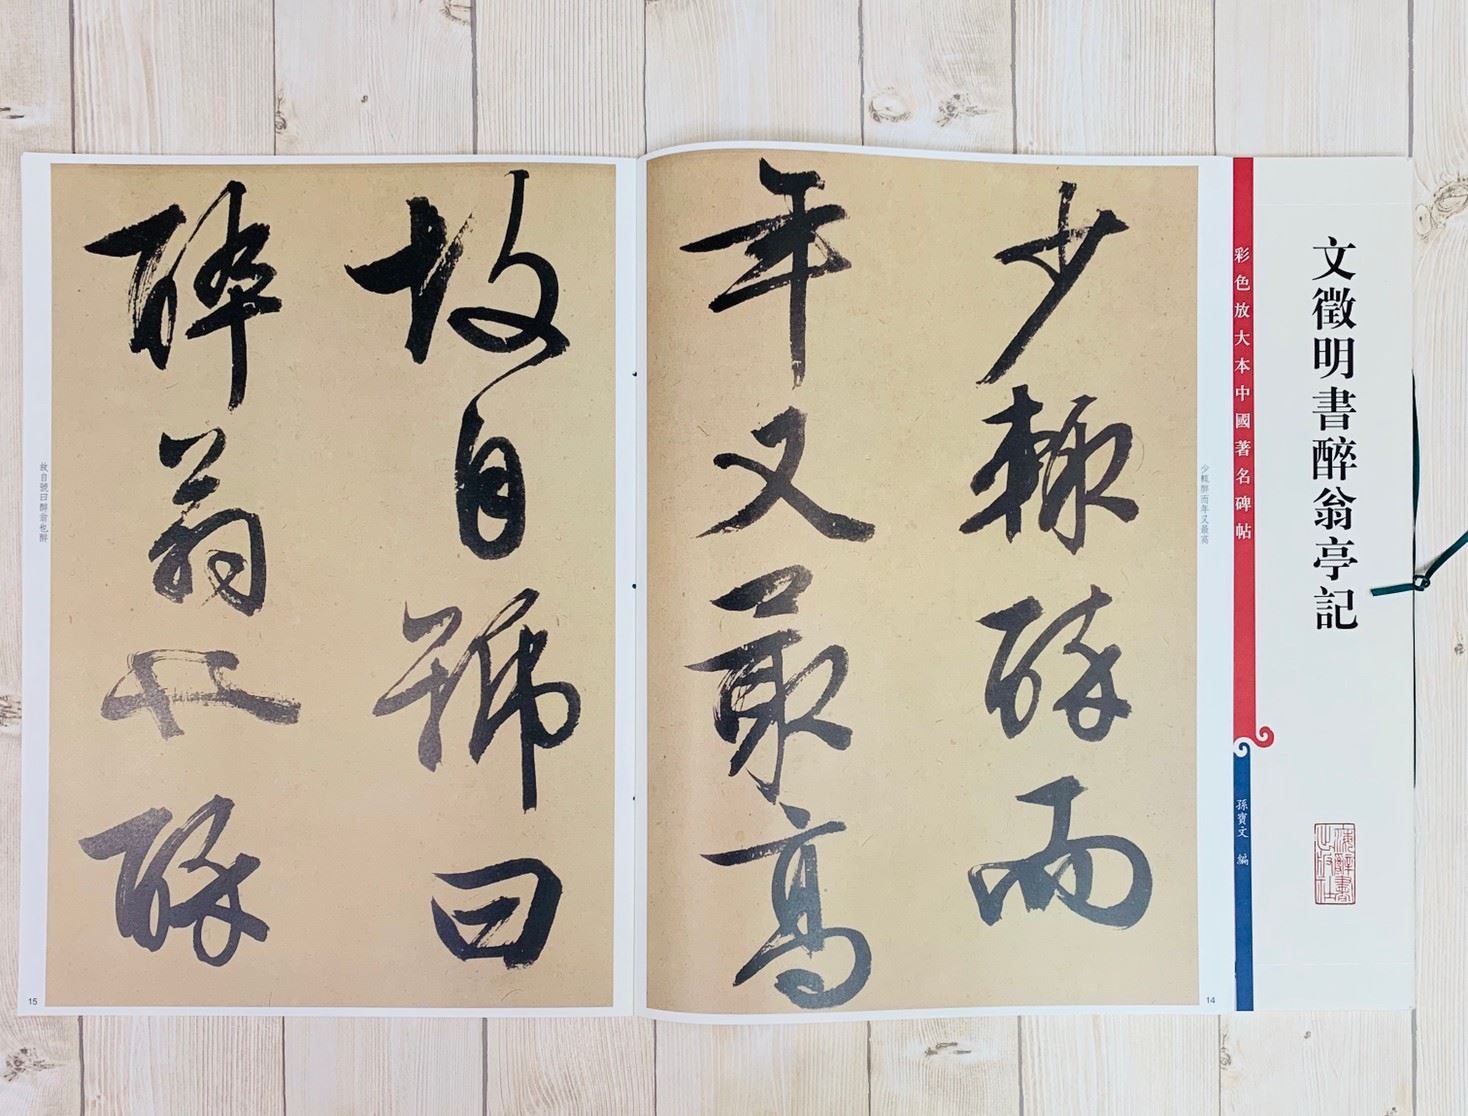 文徵明書醉翁亭記
彩色放大本中國著名碑帖
孫寶文 編
海辭書出版社
少輒醉而年又最高
少輒醉而
年又最高
14
故自號曰
醉翁也醉
故自號曰醉翁也醉
15